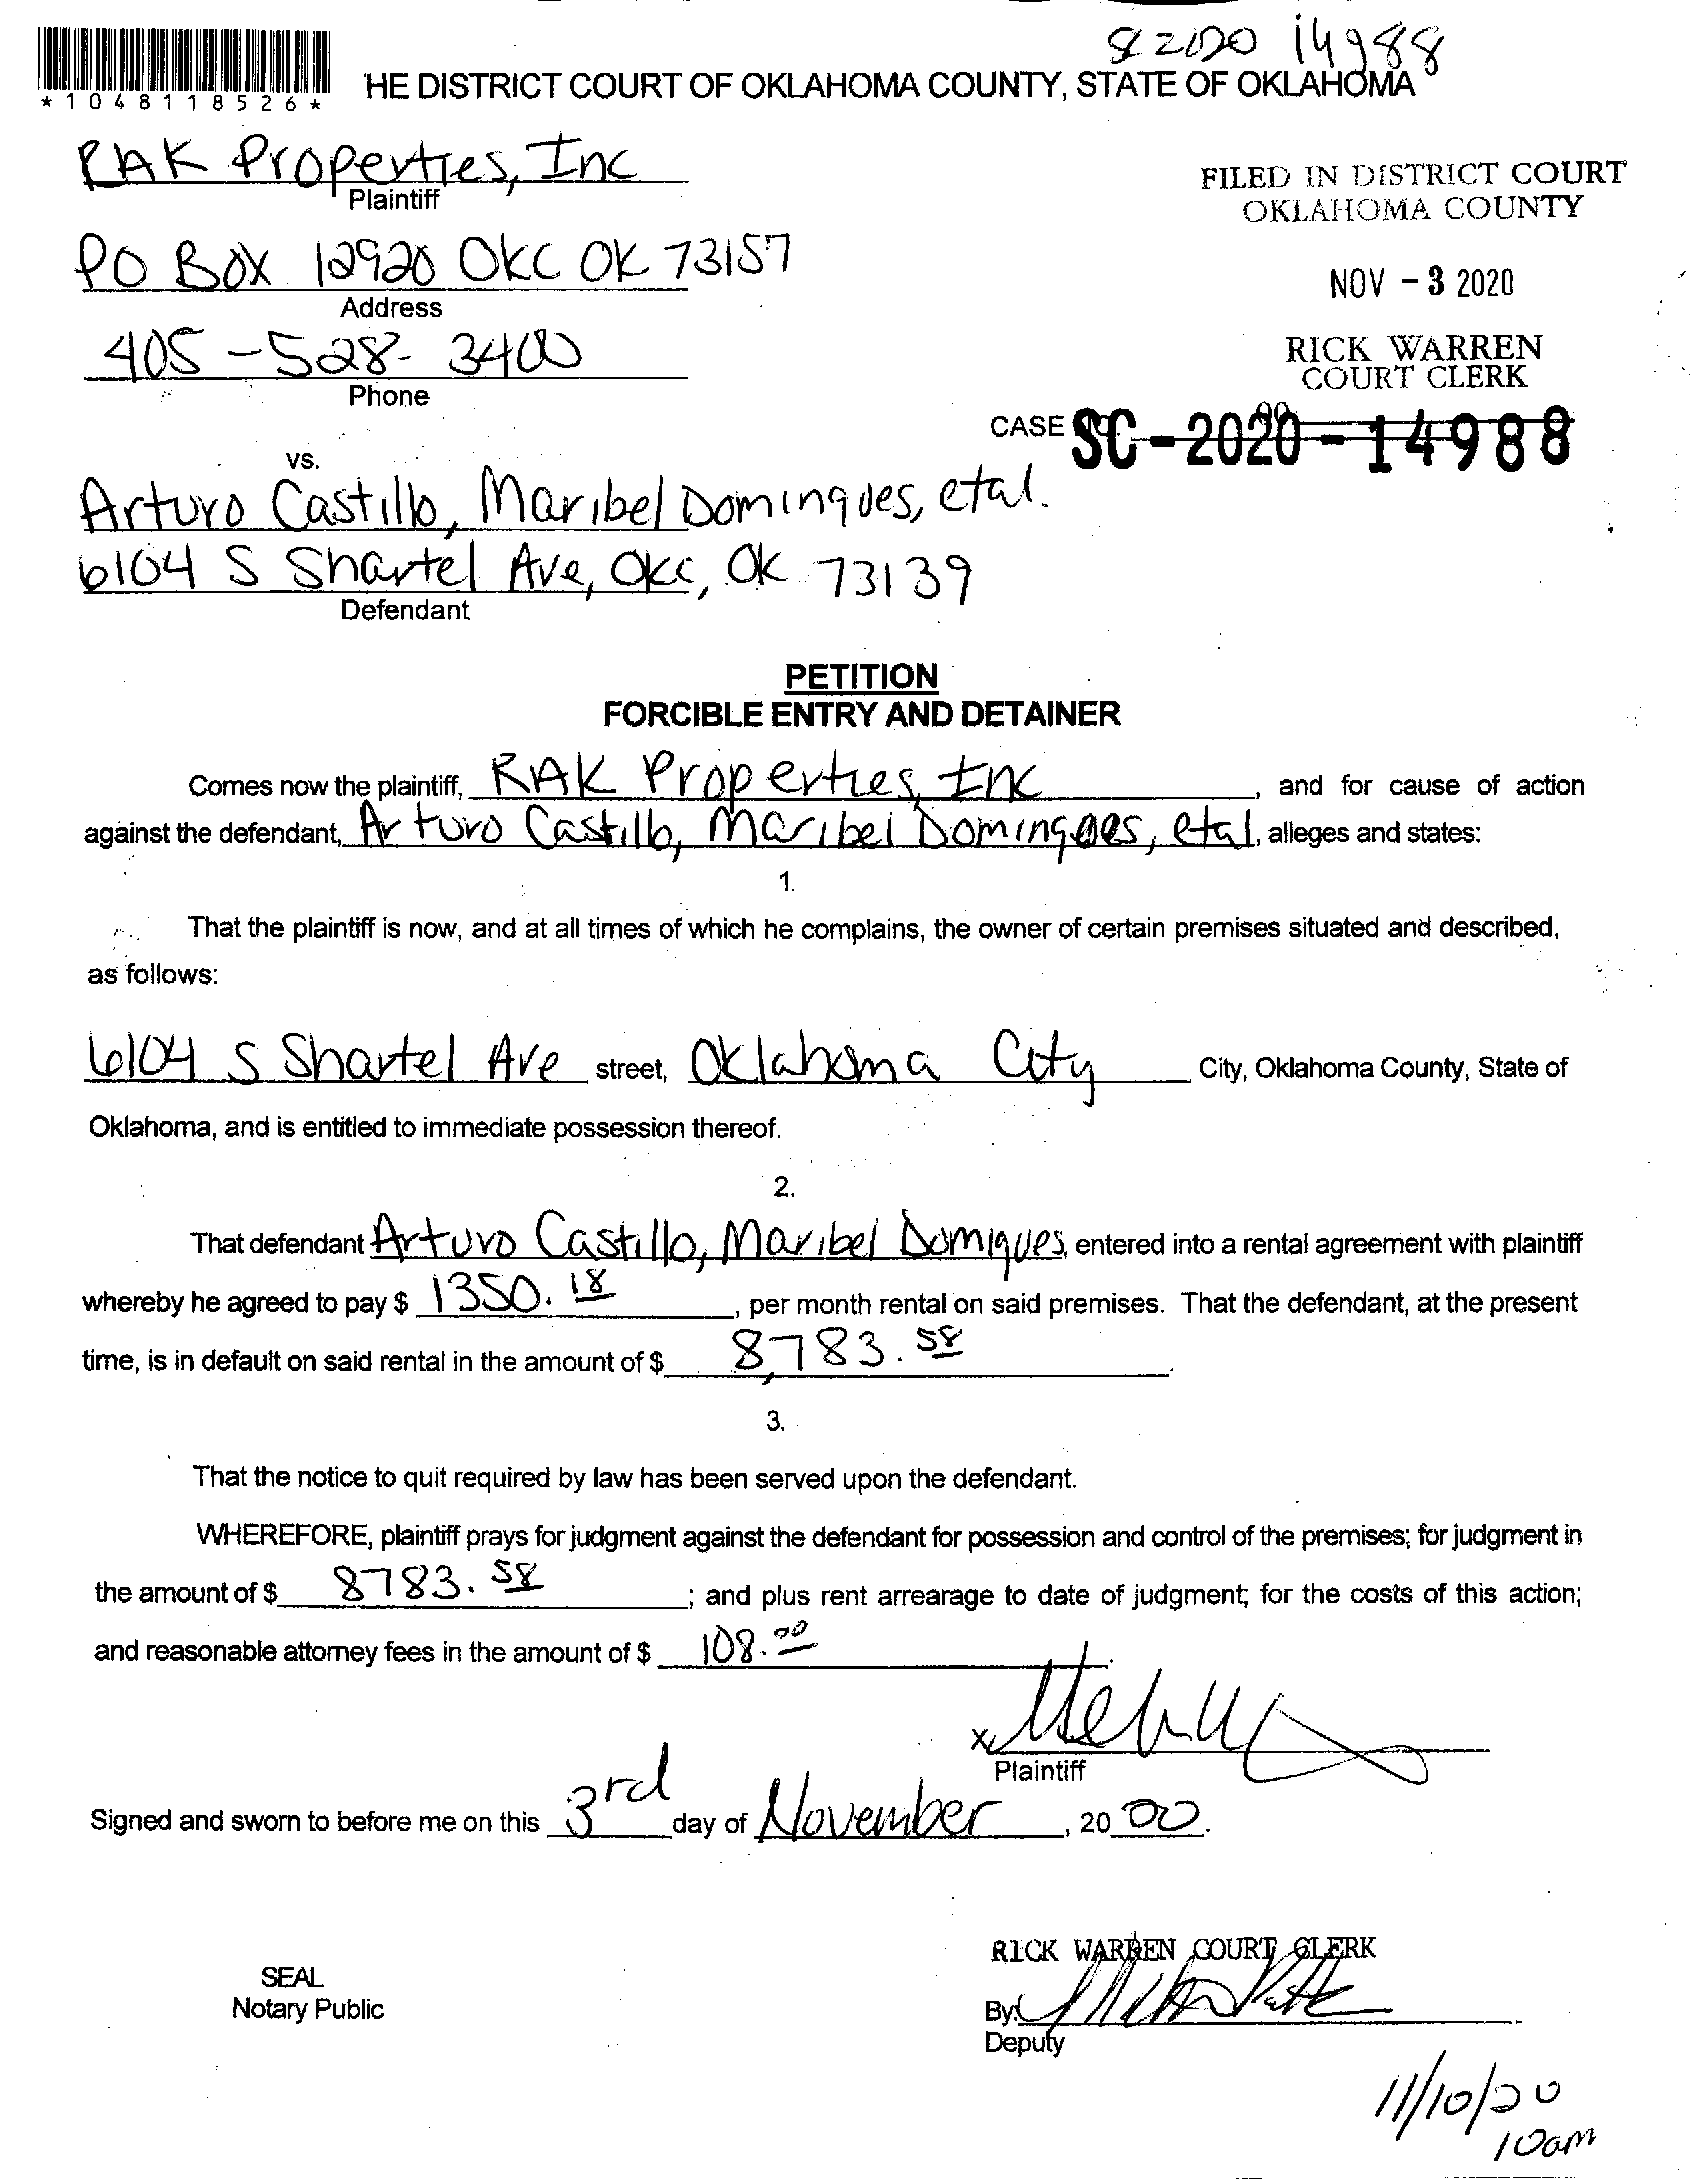 14988
*1048118526*
HE DISTRICT COURT OF OKLAHOMA COUNTY, STATE OF OKLAHOMA
RAK Properties, Inc
Plaintiff
FILED IN DISTRICT COURT
OKLAHOMA COUNTY
PO BOX 12920 OKC OK 73157
Address
NOV - 3 2020
405-528-3400
Phone
RICK WARREN
COURT CLERK
CASE SC-2020-14988
vs.
Arturo Castillo, Maribel Domingues, etal.
6104 S Shartel Ave, OKC, OK 73139
Defendant
PETITION
FORCIBLE ENTRY AND DETAINER
Comes now the plaintiff, RAK Properties, Inc, and for cause of action
against the defendant, Arturo Castillo, Maribel Domingues, etal, alleges and states:
1.
That the plaintiff is now, and at all times of which he complains, the owner of certain premises situated and described,
as follows:
6104 S Shartel Ave street, Oklahoma City City, Oklahoma County, State of
Oklahoma, and is entitled to immediate possession thereof.
2.
That defendant Arturo Castillo, Maribel Domigues, entered into a rental agreement with plaintiff
whereby he agreed to pay $ 1350.18, per month rental on said premises. That the defendant, at the present
time, is in default on said rental in the amount of $ 8,783.58.
3.
That the notice to quit required by law has been served upon the defendant.
WHEREFORE, plaintiff prays for judgment against the defendant for possession and control of the premises; for judgment in
the amount of $ 8783.58; and plus rent arrearage to date of judgment; for the costs of this action;
and reasonable attorney fees in the amount of $ 108.00.
x
Plaintiff
Signed and sworn to before me on this 3rd day of November, 20 20.
RICK WARREN COURT CLERK
SEAL
Notary Public
By:
Deputy
11/10/20
10am